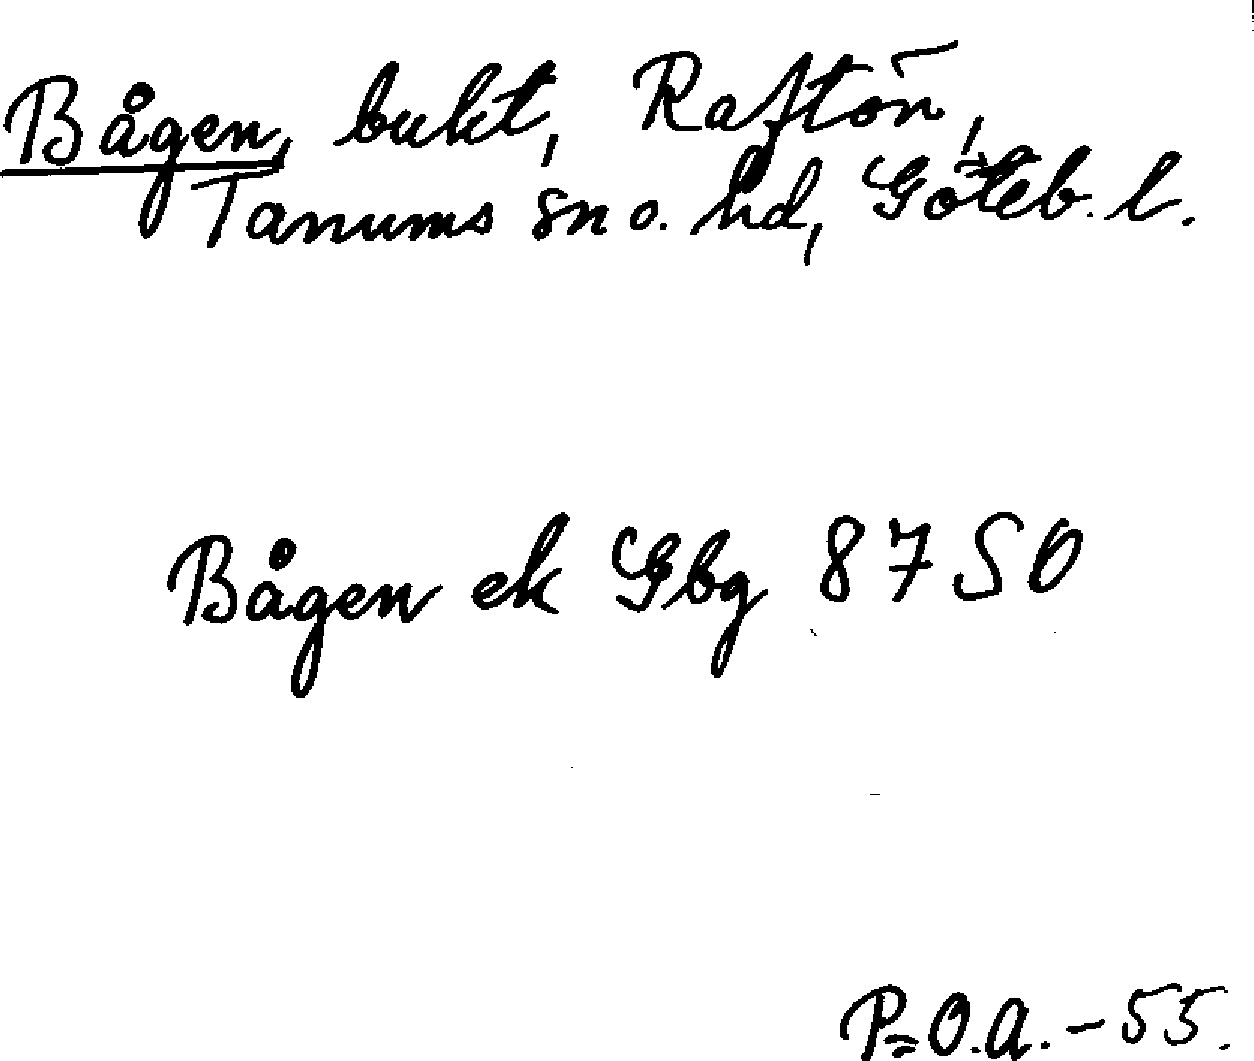 Bågen, bukt, Raftön,
Tanums sn o. hd, Göteb. l.
Bågen ek Gbg 8750
P=O.A. -55.